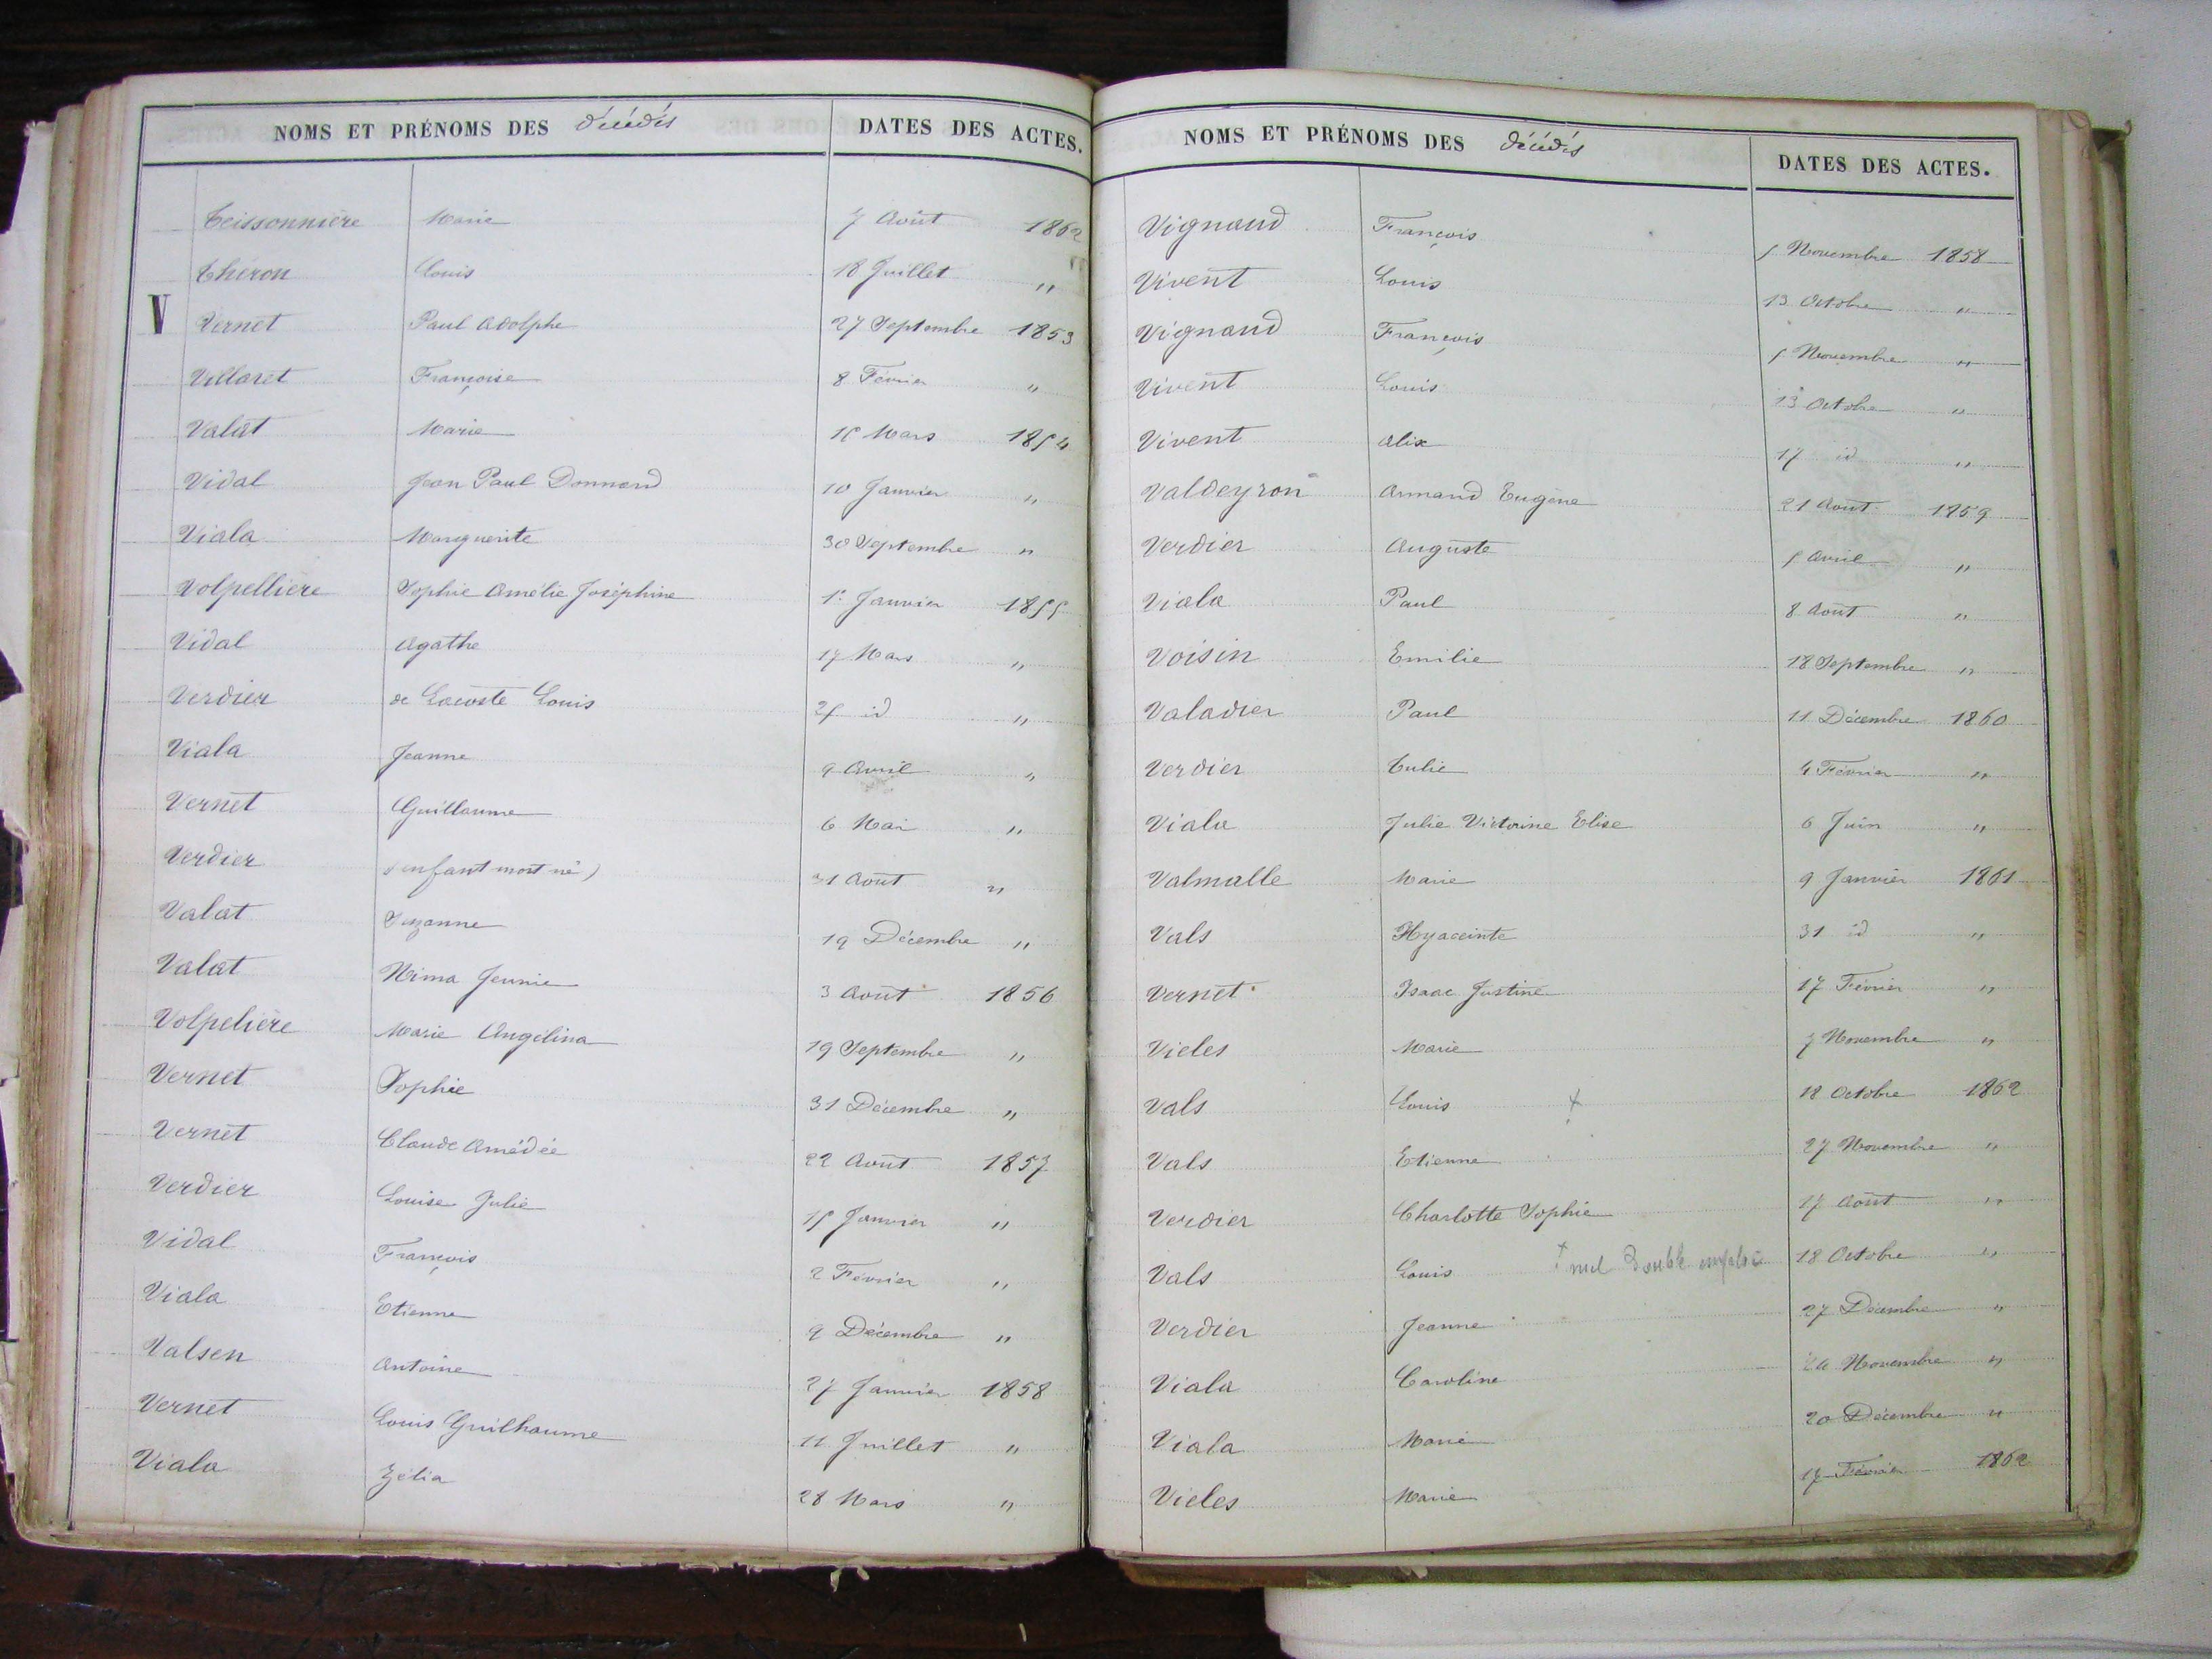 NOMS ET PRÉNOMS DES décédés DATES DES ACTES.
Teissonnière Marie 7 Août 1862
Théron Louis 18 Juillet "
V Vernet Paul Adolphe 27 Septembre 1853
Villaret Françoise 8 Février "
Valat Marie 15 Mars 1854
Vidal Jean Paul Donnand 10 Janvier "
Viala Marguerite 30 Septembre "
Volpellière Sophie Amélie Joséphine 1er Janvier 1855
Vidal Agathe 17 Mars "
Verdier de Lacoste Louis 25 id "
Viala Jeanne 9 Avril "
Vernet Guillaume 6 Mai "
Verdier (enfant mort né) 31 Août "
Valat Suzanne 19 Décembre "
Valat Nima Jennie 3 Août 1856
Volpelière Marie Angélina 19 Septembre "
Vernet Sophie 31 Décembre "
Vernet Claude Amédée 22 Août 1857
Verdier Louise Julie 15 Janvier "
Vidal François 2 Février "
Viala Etienne 9 Décembre "
Valsen Antoine 27 Janvier 1858
Vernet Louis Guilhaume 11 Juillet "
Viala Zélia 28 Mars "
NOMS ET PRÉNOMS DES décédés DATES DES ACTES.
Vignaud François 5 Novembre 1858
Vivent Louis 13 Octobre "
Vignaud François 5 Novembre "
Vivent Louis 13 Octobre "
Vivent Alix 17 id "
Valdeyron Armand Eugène 21 Août 1859
Verdier Auguste 5 Avril "
Viala Paul 8 Août "
Voisin Emilie 18 Septembre "
Valadier Paul 11 Décembre 1860
Verdier Tulie 4 Février "
Viala Julie Victorine Elise 6 Juin "
Valmalle Marie 9 Janvier 1861
Vals Hyaceinte 31 id "
Vernet Isaac Justine 17 Février "
Vieles Marie 7 Novembre "
Vals Louis + 18 Octobre 1862
Vals Etienne 27 Novembre "
Verdier Charlotte Sophie 17 Août "
Vals Louis + nul Double emploi 18 Octobre "
Verdier Jeanne 27 Décembre "
Viala Caroline Novembre "
Viala Marie 20 Décembre "
Vieles Marie 17 Février 1862